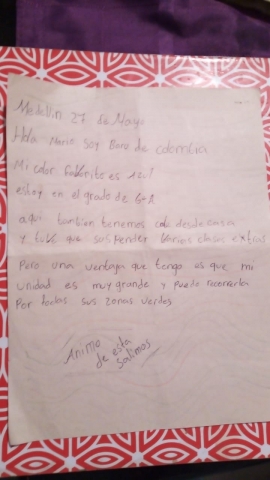 Medellin 27 de Mayo
Hola Mario soy Bony de colombia
Mi color faborito es azul
estoy en el grado de 6-A
aqui tambien tenemos cole desde casa
y tube que suspender barias clases extras
Pero una ventaja que tengo es que mi
unidad es muy grande y puedo recorrerla
Por todas sus zonas verdes
Animo
de esta
salimos